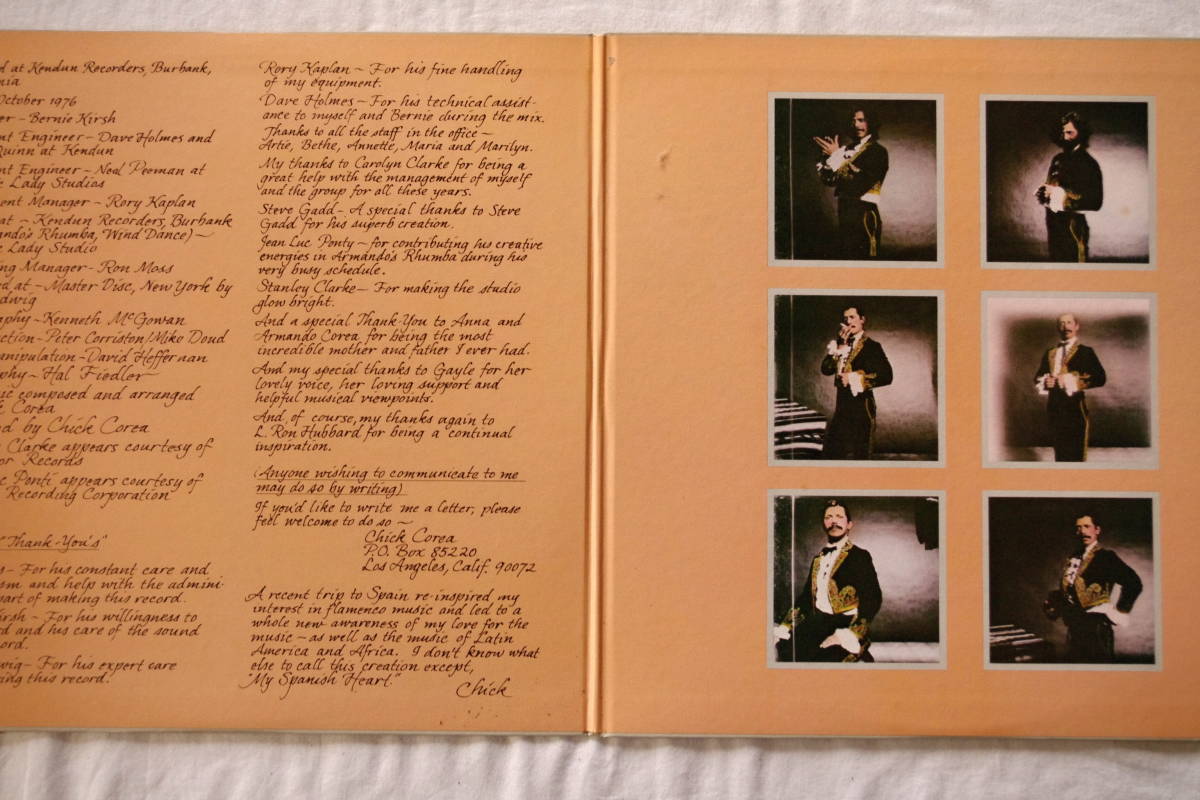 d at Kendun Recorders, Burbank,
nia
October 1976
er - Bernie Kirsh
nt Engineer - Dave Holmes and
Quinn at Kendun
nt Engineer - Neal Peeman at
c Lady Studios
ent Manager - Rory Kaplan
at - Kendun Recorders, Burbank
ando's Rhumba, Wind Dance) ~
c Lady Studio
ing Manager - Ron Moss
ed at - Master Disc, New York by
dwig
aphy - Kenneth McGowan
ction - Peter Corriston/Mike Doud
anipulation - David Heffernan
phy - Hal Fiedler
ic composed and arranged
k Corea
ed by Chick Corea
y Clarke appears courtesy of
or Records
c Ponti appears courtesy of
Recording Corporation
"Thank-You's"
s - For his constant care and
om and help with the admini-
part of making this record.
Kirsh - For his willingness to
rd and his care of the sound
ord.
wig - For his expert care
ing this record.
Rory Kaplan ~ For his fine handling
of my equipment.
Dave Holmes - For his technical assist-
ance to myself and Bernie during the mix.
Thanks to all the staff in the office ~
Artie, Bethe, Annette, Maria and Marilyn.
My thanks to Carolyn Clarke for being a
great help with the management of myself
and the group for all these years.
Steve Gadd - A special thanks to Steve
Gadd for his superb creation.
Jean Luc Ponty ~ for contributing his creative
energies in Armando's Rhumba during his
very busy schedule.
Stanley Clarke - For making the studio
glow bright.
And a special Thank-You to Anna and
Armando Corea for being the most
incredible mother and father I ever had.
And my special thanks to Gayle for her
lovely voice, her loving support and
helpful musical viewpoints.
And, of course, my thanks again to
L. Ron Hubbard for being a continual
inspiration.
(Anyone wishing to communicate to me
may do so by writing)
If you'd like to write me a letter, please
feel welcome to do so ~
Chick Corea
P.O. Box 85220
Los Angeles, Calif. 90072
A recent trip to Spain re-inspired my
interest in flamenco music and led to a
whole new awareness of my love for the
music ~ as well as the music of Latin
America and Africa. I don't know what
else to call this creation except,
"My Spanish Heart."
Chick